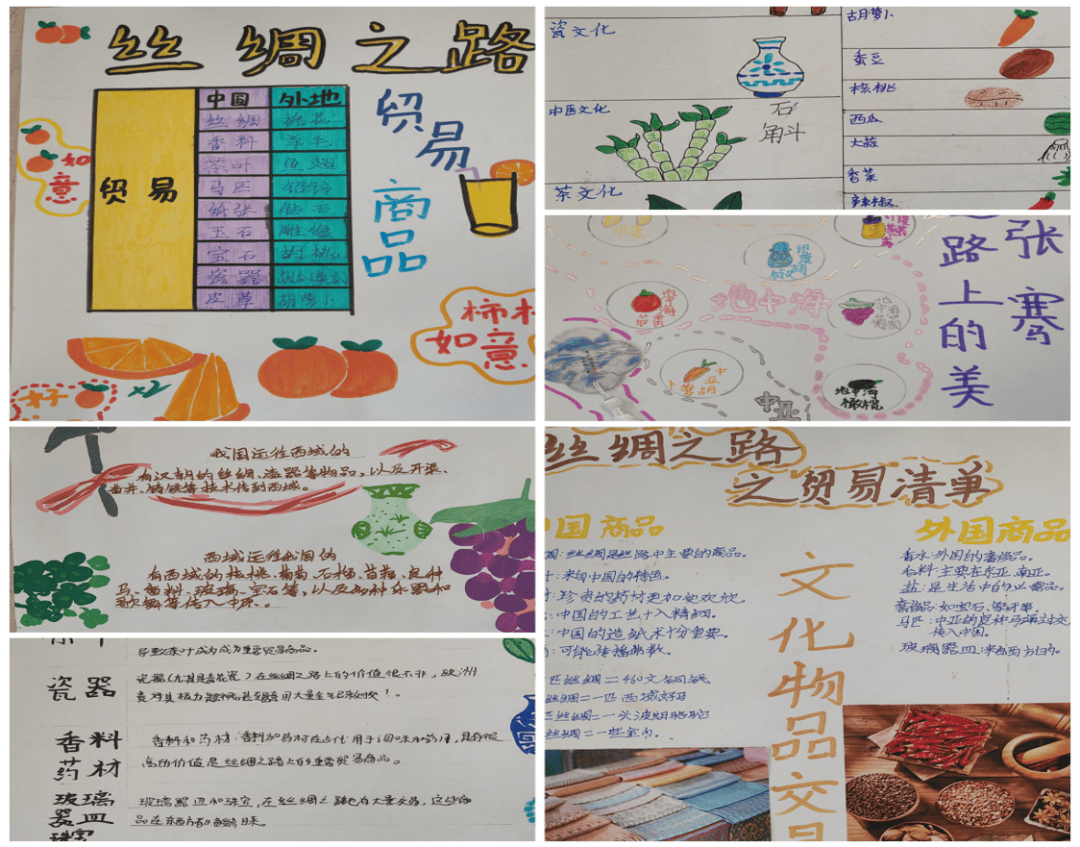 丝绸之路
贸易
商品
中国 外地
丝绸 棉花
香料 羊毛
茶叶
马匹
纸张 钻石
玉石 雕像
宝石 胡桃
瓷器
皮草 胡萝卜
贸易
如
意
柿柿
如意
×2
瓷文化
中医文化
茶文化
石
角斗
古月萝卜
蚕豆
核桃
西瓜
大蒜
香菜
辣椒
张骞
路上的美
地中海
中亚
地中海
橄榄
我国运往西域的
有汉朝的丝绸、漆器等物品,以及开渠、
凿井、铸铁等技术传到西域。
西域运往我国的
有西域的核桃、葡萄、石榴、苜蓿、良种
马、香料、玻璃、宝石等,以及多种乐器和
歌舞等传入中原。
导致茶叶成为重要贸易商品。
瓷器
瓷器(尤其是青花瓷)在丝绸之路上的价值很不菲,欧洲
香料
药材
香料和药材:香料和药材在古代用于调味和药用,具有很
高的价值是丝绸之路上的重要贸易商品。
玻璃
器皿
珠宝
玻璃器皿和珠宝,在丝绸之路也有大量交易,这些商
品在东西方都
丝绸之路
之贸易清单
国商品
外国商品
:丝绸是丝路中主要的商品。
:来自中国的特色。
:珍贵的药材更加受欢迎
:中国的工艺十分精细。
:中国的造纸术十分重要。
:可能传播佛教。
匹丝绸=460文铜钱
丝绸=一匹西域好马
匹丝绸=一头波斯骆驼
丝绸=一些金币。
文化物品交易
香水:外国的奢侈品。
香料:主要在东亚、南亚。
盐:是生活中的必需品。
奢侈品:如宝石、象牙等。
马匹:中亚的良种马通过交
换入中国。
玻璃器皿:来自西方的。